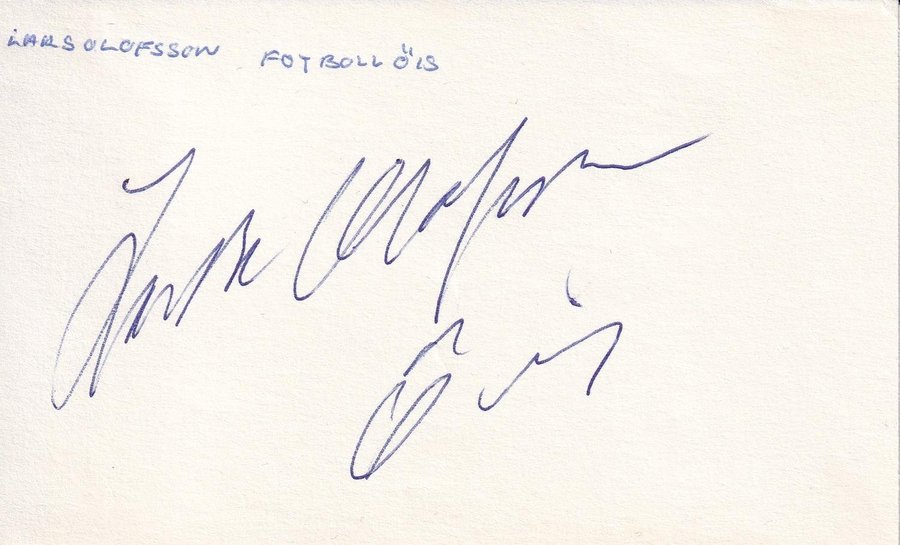 LARS OLOFSSON FOTBOLL ÖIS
Lasse Olofsson
Öis